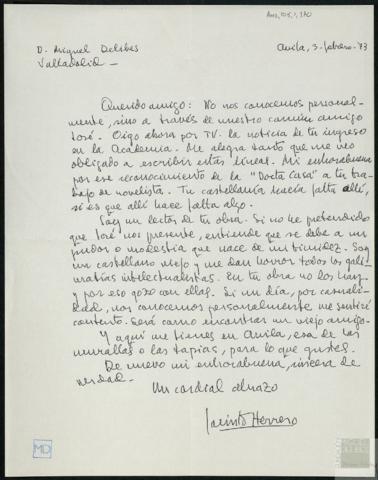 D. Miguel Delibes
Valladolid —
Avila, 3-febrero-73
Querido amigo: No nos conocemos personal-
mente, sino a través de nuestro común amigo
José. Oigo ahora por TV. la noticia de tu ingreso
en la Academia. Me alegra tanto que me veo
obligado a escribir estas líneas. Mi enhorabuena
por ese reconocimiento de la "Docta Casa" a tu tra-
bajo de novelista. Tu castellanía hacía falta allí,
si es que allí hace falta algo.
Soy un lector de tu obra. Si no he pretendido
que José nos presente, entiende que se debe a un
pudor o modestia que nace de mi timidez. Soy
un castellano viejo y me dan horror todos los gali-
matías intelectualistas. En tu obra no los hay
y por eso gozo con ellas. Si un día, por casuali-
dad, nos conocemos personalmente me sentiré
contento. Será como encontrar un viejo amigo.
Y aquí me tienes en Avila, esa de las
murallas o las tapias, para lo que gustes.
De nuevo mi enhorabuena, sincera de
verdad.
Un cordial abrazo
Jacinto Herrero
MD